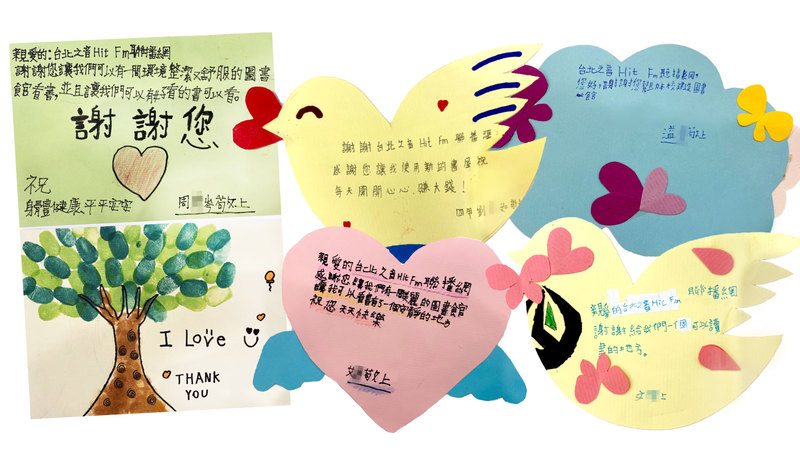 親愛的：台北之音Hit Fm聯播網
謝謝您讓我們可以有一間環境整潔又舒服的圖書
館看書，並且讓我們可以有好看的書可以看。
謝謝您
祝
身體健康平平安安
周 岑敬上
I Love
THANK
YOU
謝謝台北之音Hit Fm聯播網
感謝您讓我使用新的書屋祝
每天開開心心，賺大錢！
四年 劉
親愛的台北之音Hit Fm聯播網
感謝您讓我們有一個的圖書館
讓我可以看書有一個安靜的地方
祝您天天快樂
敬上
台北之音 Hit Fm 聯播網
您好，謝謝您幫本校建造圖書
館
溫 敬上
親愛的台北之音Hit Fm 聯播網
謝謝給我們一個可以讀
書的地方。
上